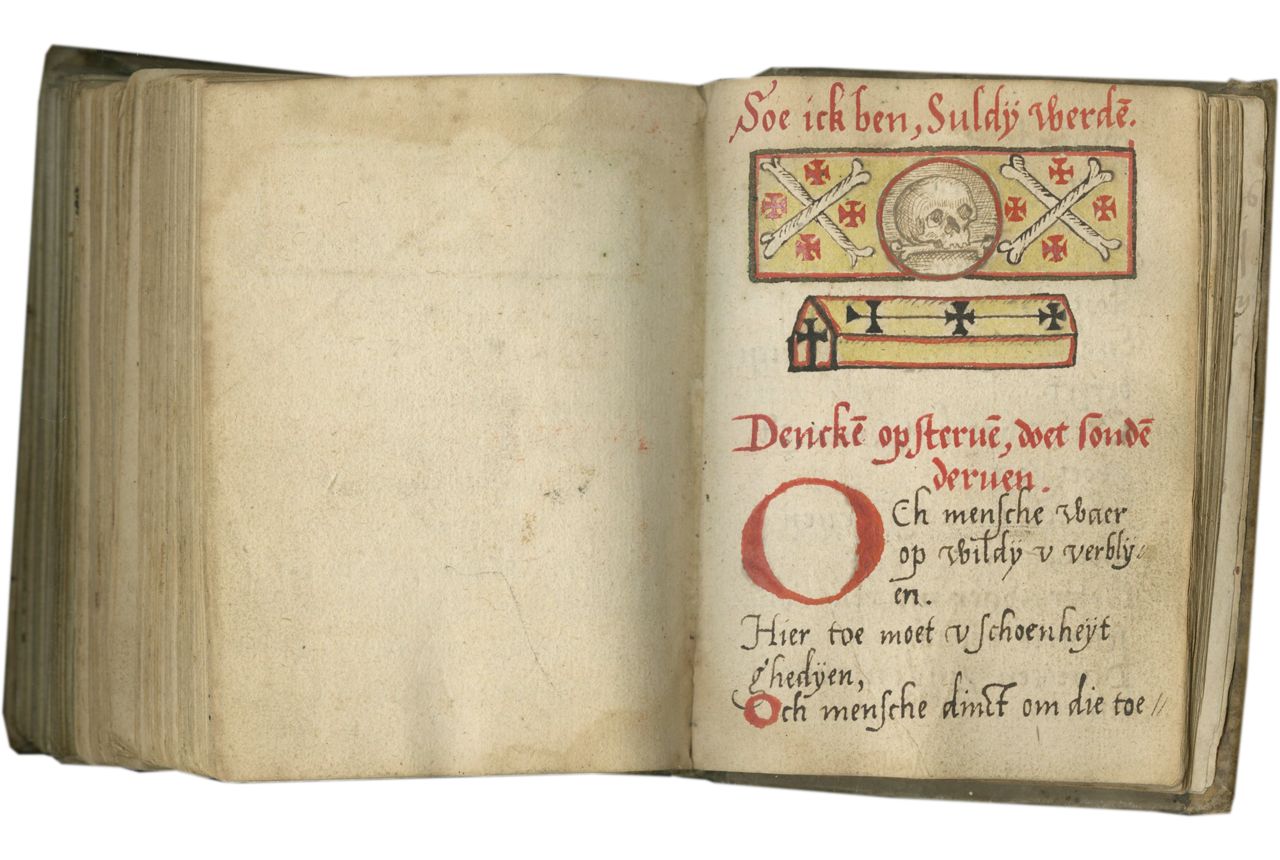 Soe ick ben, Suldÿ werdē.
Denckē op steruē, doet sondē
deruen.
OCh mensche waer
op wildÿ v verblÿ⸗
en.
Hier toe moet v schoenheÿt
ghedÿen,
Och mensche dinct om die toe //